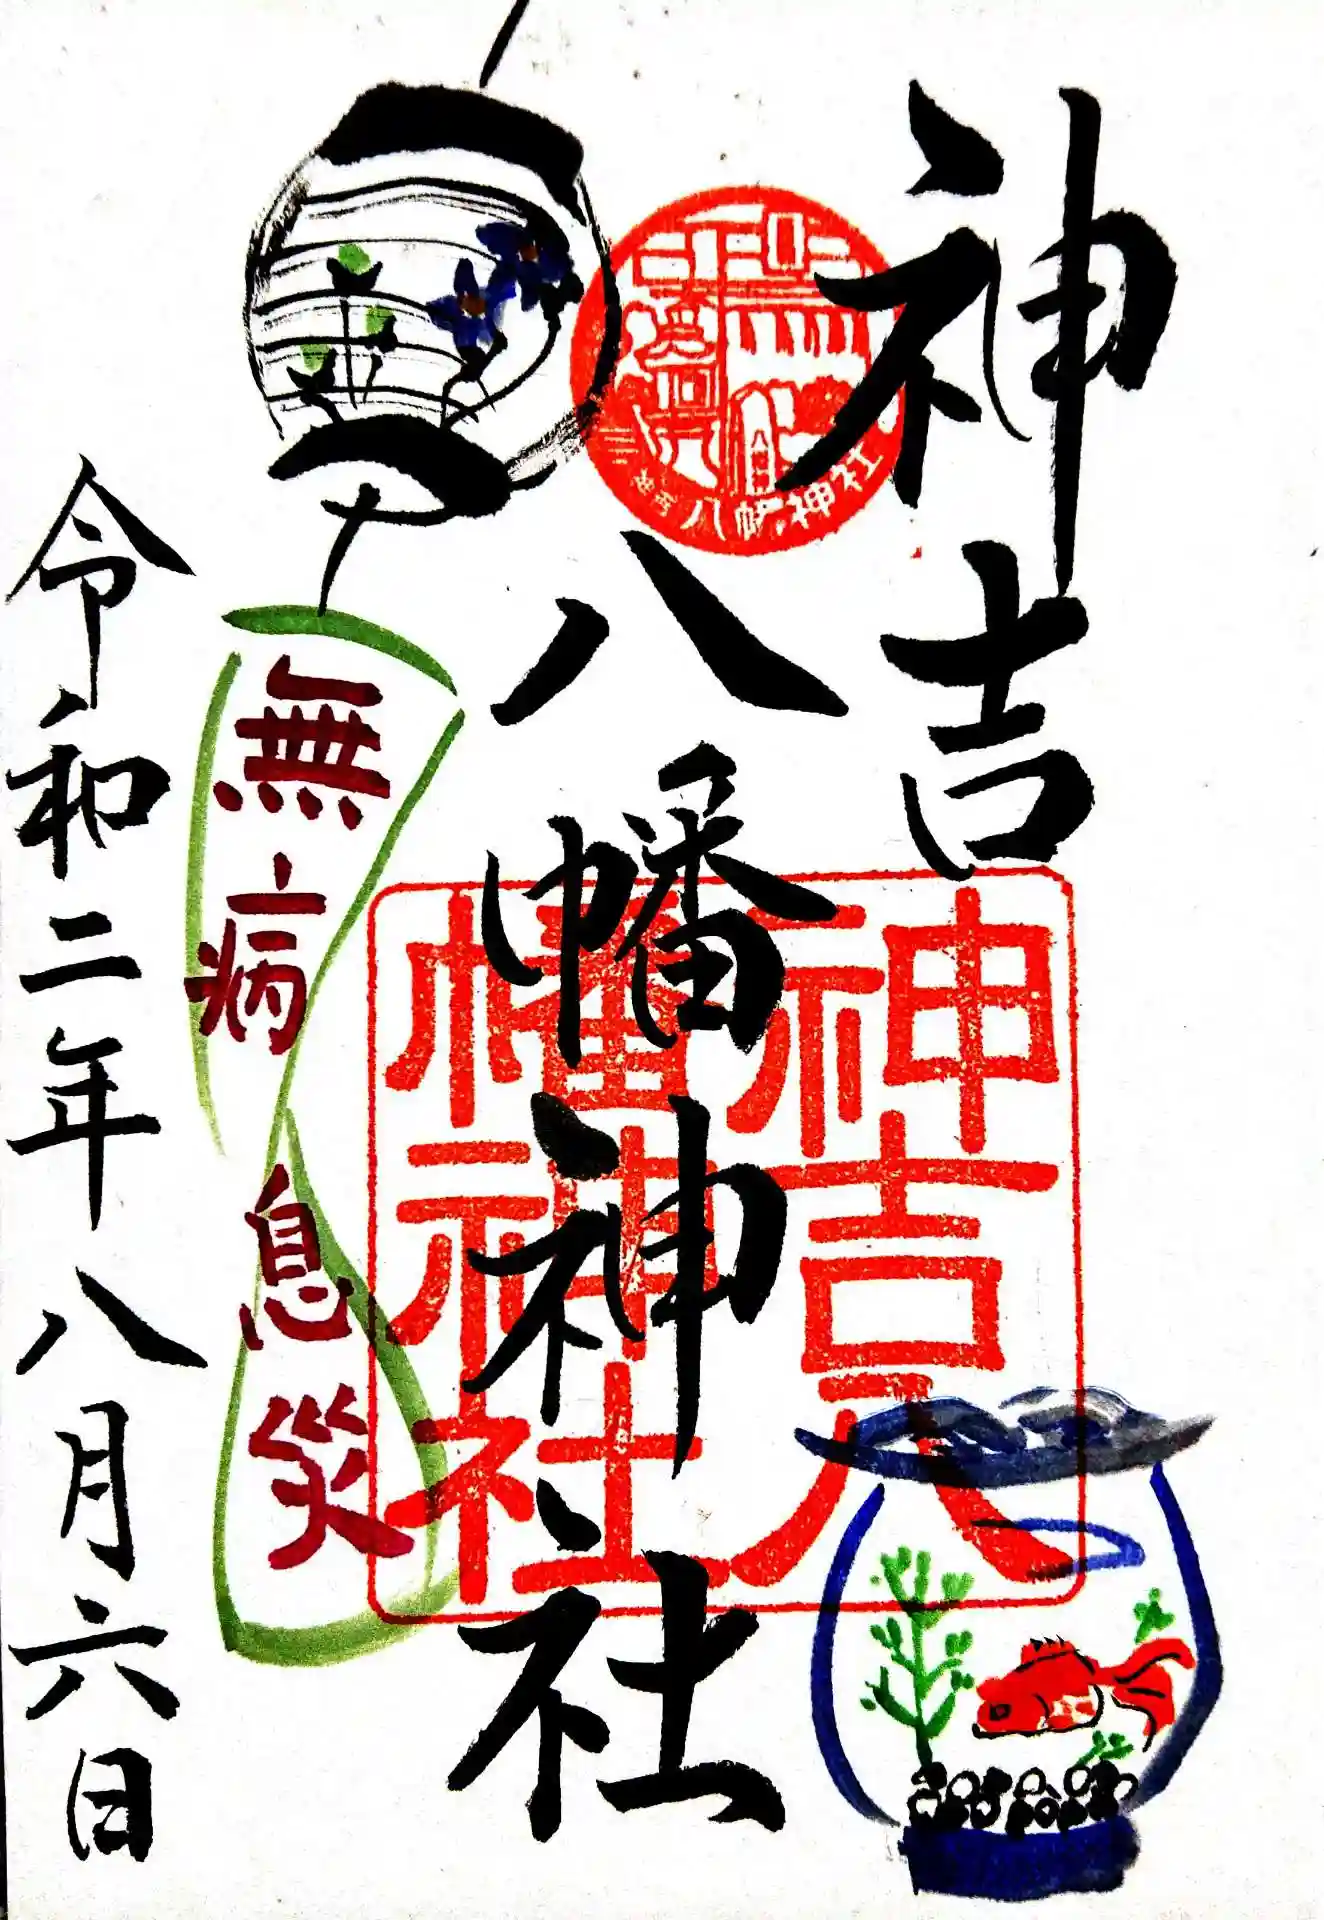 神吉
八幡神社
神吉八幡神社
神吉八
幡神社
無病息災
令和二年八月六日